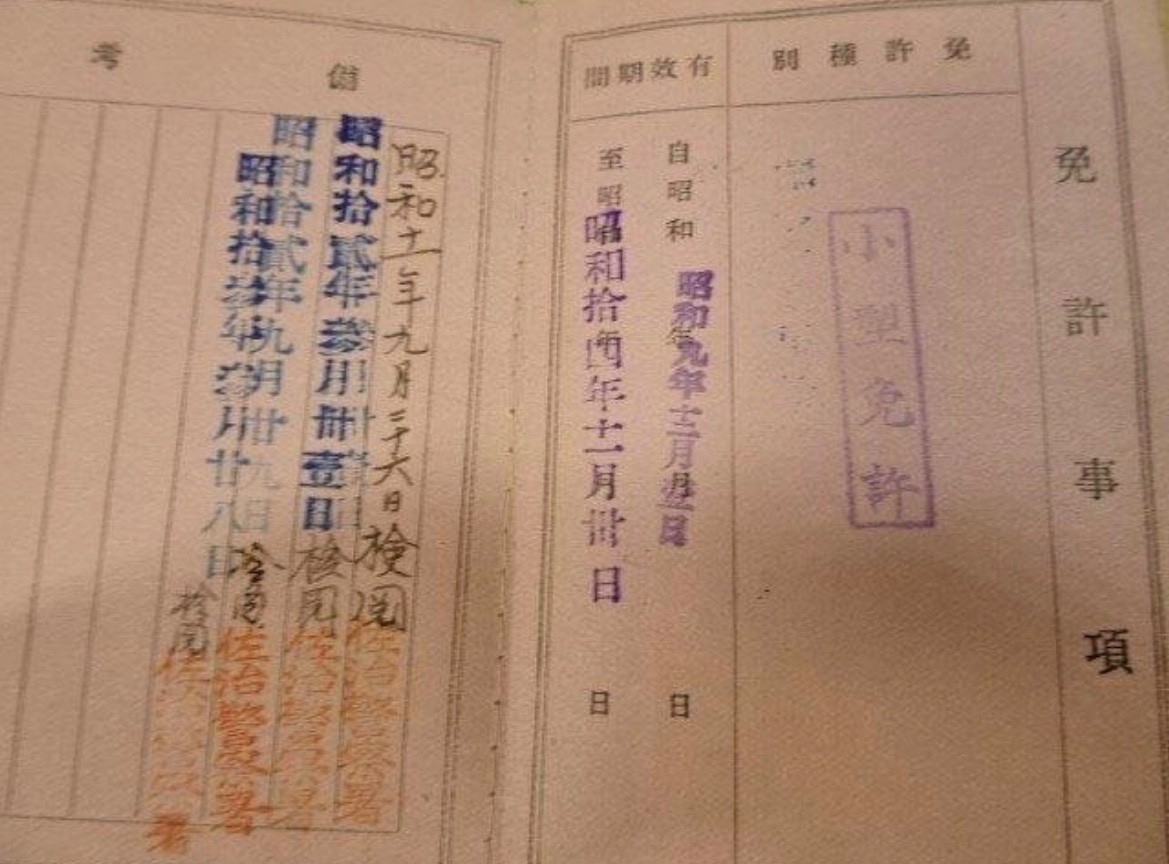 免許事項
免許種別
小型免許
有效期間
自昭和 年 月 日
昭和九年十二月 日
至昭 年 日
昭和拾四年十一月卅日
備考
昭和十一年九月二十六日検閲
佐治警察署
昭和拾貳年叁月卅壹日検閲
佐治警察署
昭和拾貳年九月廿九日検閲
佐治警察署
昭和拾叁年叁月廿八日検閲
佐治警察署